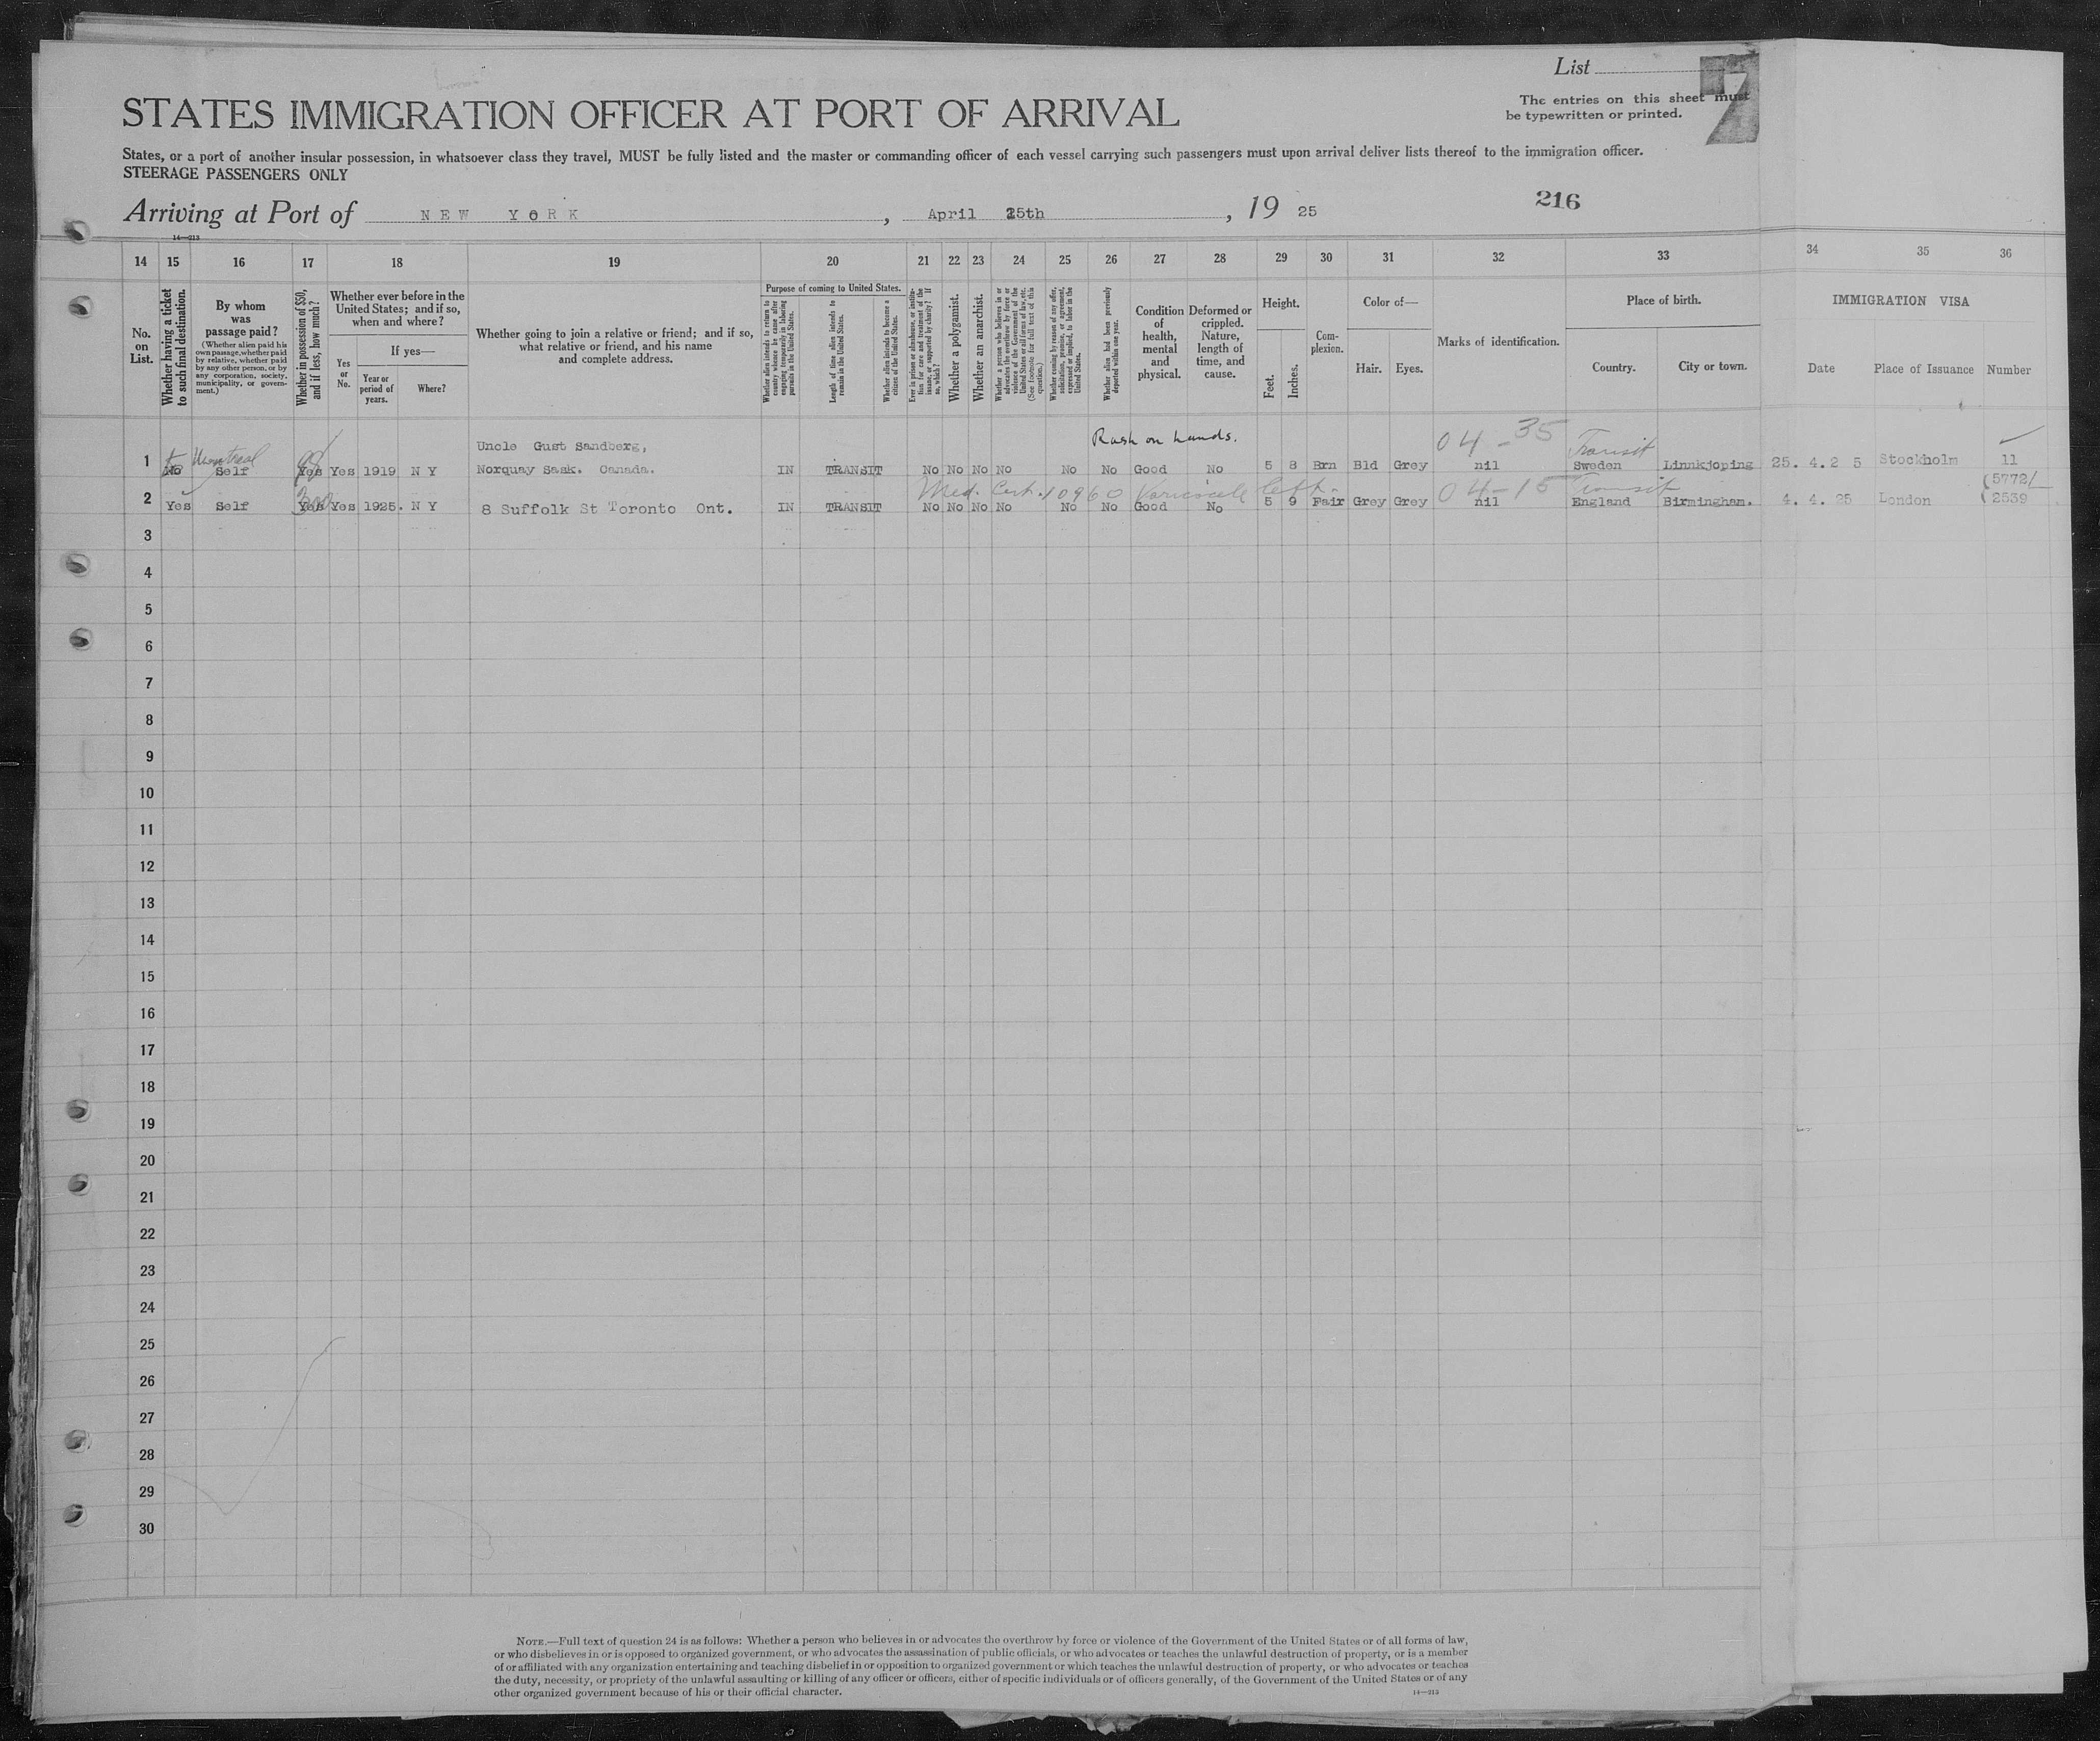 List 7
The entries on this sheet must
be typewritten or printed.
STATES IMMIGRATION OFFICER AT PORT OF ARRIVAL
States, or a port of another insular possession, in whatsoever class they travel, MUST be fully listed and the master or commanding officer of each vessel carrying such passengers must upon arrival deliver lists thereof to the immigration officer.
STEERAGE PASSENGERS ONLY
Arriving at Port of NEW YORK , April 25th , 19 25
216
14—213
14 15 16 17 18 19 20 21 22 23 24 25 26 27 28 29 30 31 32 33 34 35 36
No. on List.
Whether having a ticket to such final destination.
By whom was passage paid?
(Whether alien paid his own passage, whether paid by relative, whether paid by any other person, or by any corporation, society, municipality, or government.)
Whether in possession of $50, and if less, how much?
Whether ever before in the United States; and if so, when and where?
Yes or No.
If yes—
Year or period of years.
Where?
Whether going to join a relative or friend; and if so, what relative or friend, and his name and complete address.
Purpose of coming to United States.
Whether alien intends to return to country whence he came after engaging temporarily in laboring pursuits in the United States.
Length of time alien intends to remain in the United States.
Whether alien intends to become a citizen of the United States.
Ever in prison or almshouse, or institution for care and treatment of the insane, or supported by charity? If so, which?
Whether a polygamist.
Whether an anarchist.
Whether a person who believes in or advocates the overthrow by force or violence of the Government of the United States or all forms of law, etc. (See footnote for full text of this question.)
Whether coming by reason of any offer, solicitation, promise, or agreement, expressed or implied, to labor in the United States.
Whether alien had been previously deported within one year.
Condition of health, mental and physical.
Deformed or crippled. Nature, length of time, and cause.
Height.
Feet. Inches.
Complexion.
Color of—
Hair. Eyes.
Marks of identification.
Place of birth.
Country. City or town.
IMMIGRATION VISA
Date Place of Issuance Number
Uncle Gust Sandberg, Rash on hands. 04-35 Transit
to Montreal
1 No Self Yes Yes 1919 N Y Norquay Sask. Canada. IN TRANSIT No No No No No No Good No 5 8 Brn Bld Grey nil Sweden Linnkjoping 25. 4.2 5 Stockholm 11
Med. Cert. 10960 Varicocele left. 04-15 Transit
2 Yes Self Yes Yes 1925. N Y 8 Suffolk St Toronto Ont. IN TRANSIT No No No No No No Good No 5 9 Fair Grey Grey nil England Birmingham. 4. 4. 25 London (5772/ 2539
300
3
4
5
6
7
8
9
10
11
12
13
14
15
16
17
18
19
20
21
22
23
24
25
26
27
28
29
30
NOTE.—Full text of question 24 is as follows: Whether a person who believes in or advocates the overthrow by force or violence of the Government of the United States or of all forms of law,
or who disbelieves in or is opposed to organized government, or who advocates the assassination of public officials, or who advocates or teaches the unlawful destruction of property, or is a member
of or affiliated with any organization entertaining and teaching disbelief in or opposition to organized government or which teaches the unlawful destruction of property, or who advocates or teaches
the duty, necessity, or propriety of the unlawful assaulting or killing of any officer or officers, either of specific individuals or of officers generally, of the Government of the United States or of any
other organized government because of his or their official character.
14—213